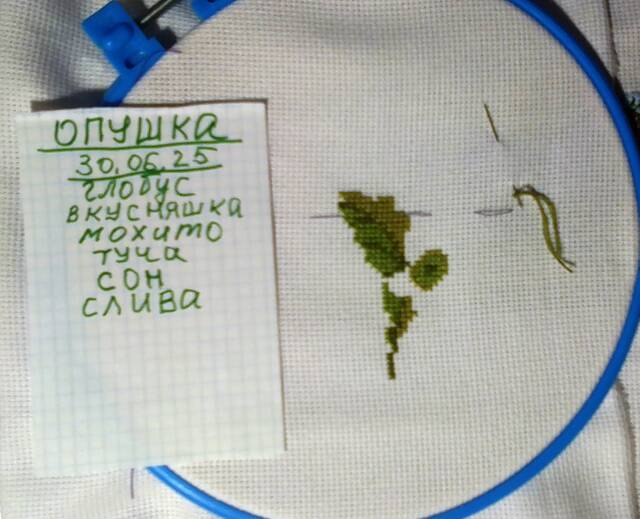 ОПУШКА
30.06.25
ГЛОБУС
ВКУСНЯШКА
МОХИТО
ТУЧА
СОН
СЛИВА